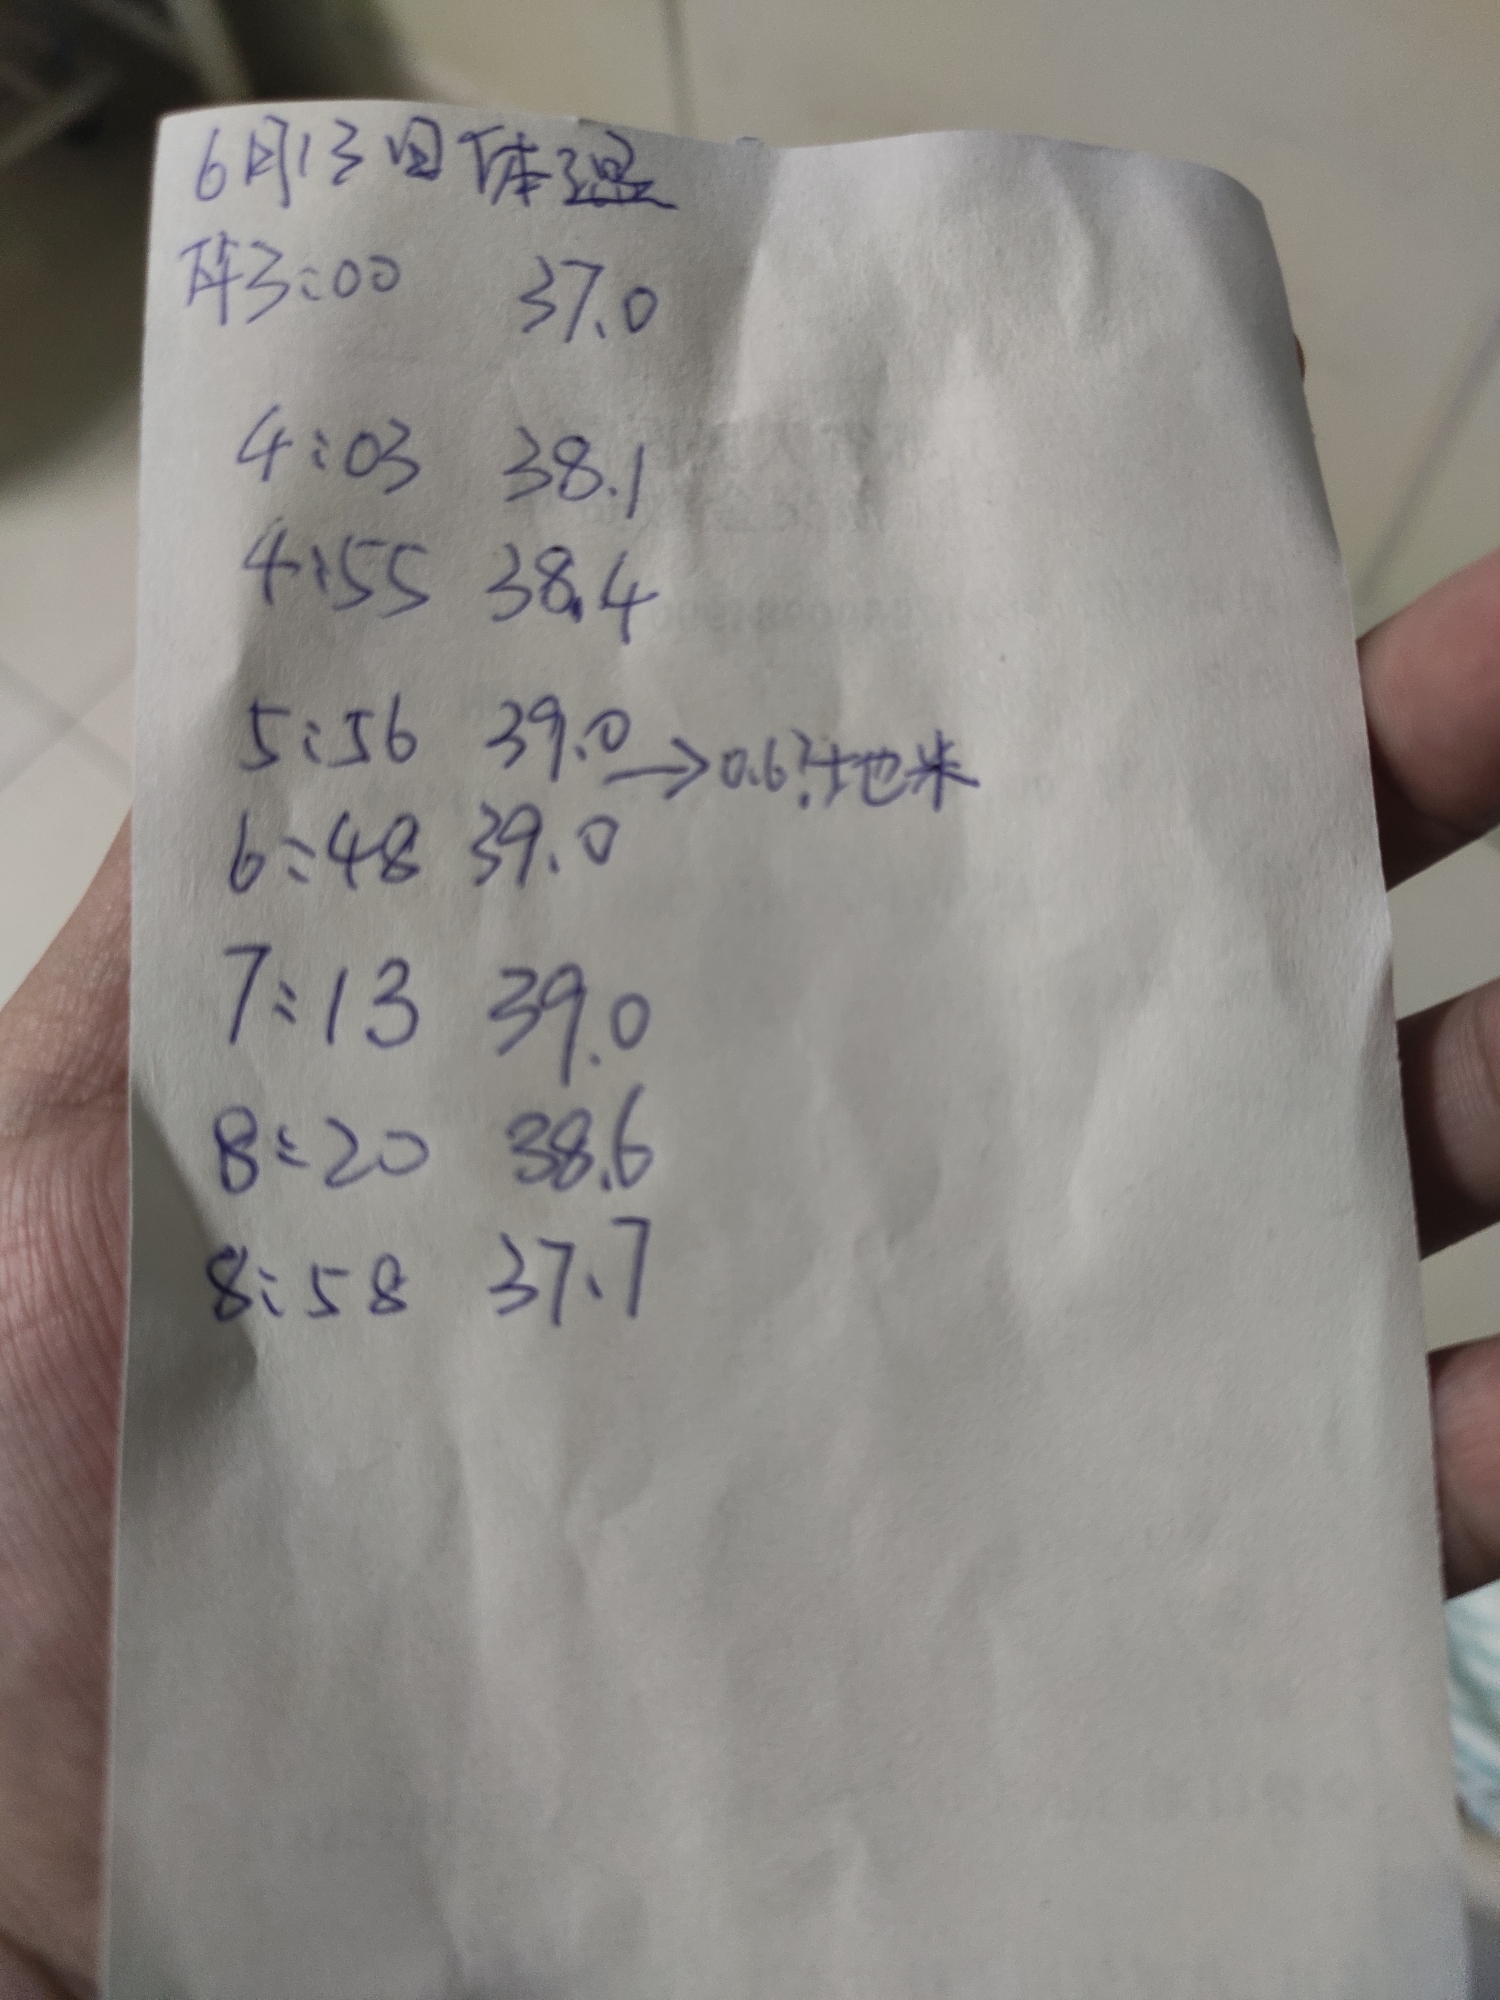 6月13日体温
下午3:00 37.0
4:03 38.1
4:55 38.4
5:56 39.0→0.6 地米
6:48 39.0
7:13 39.0
8:20 38.6
8:58 37.7